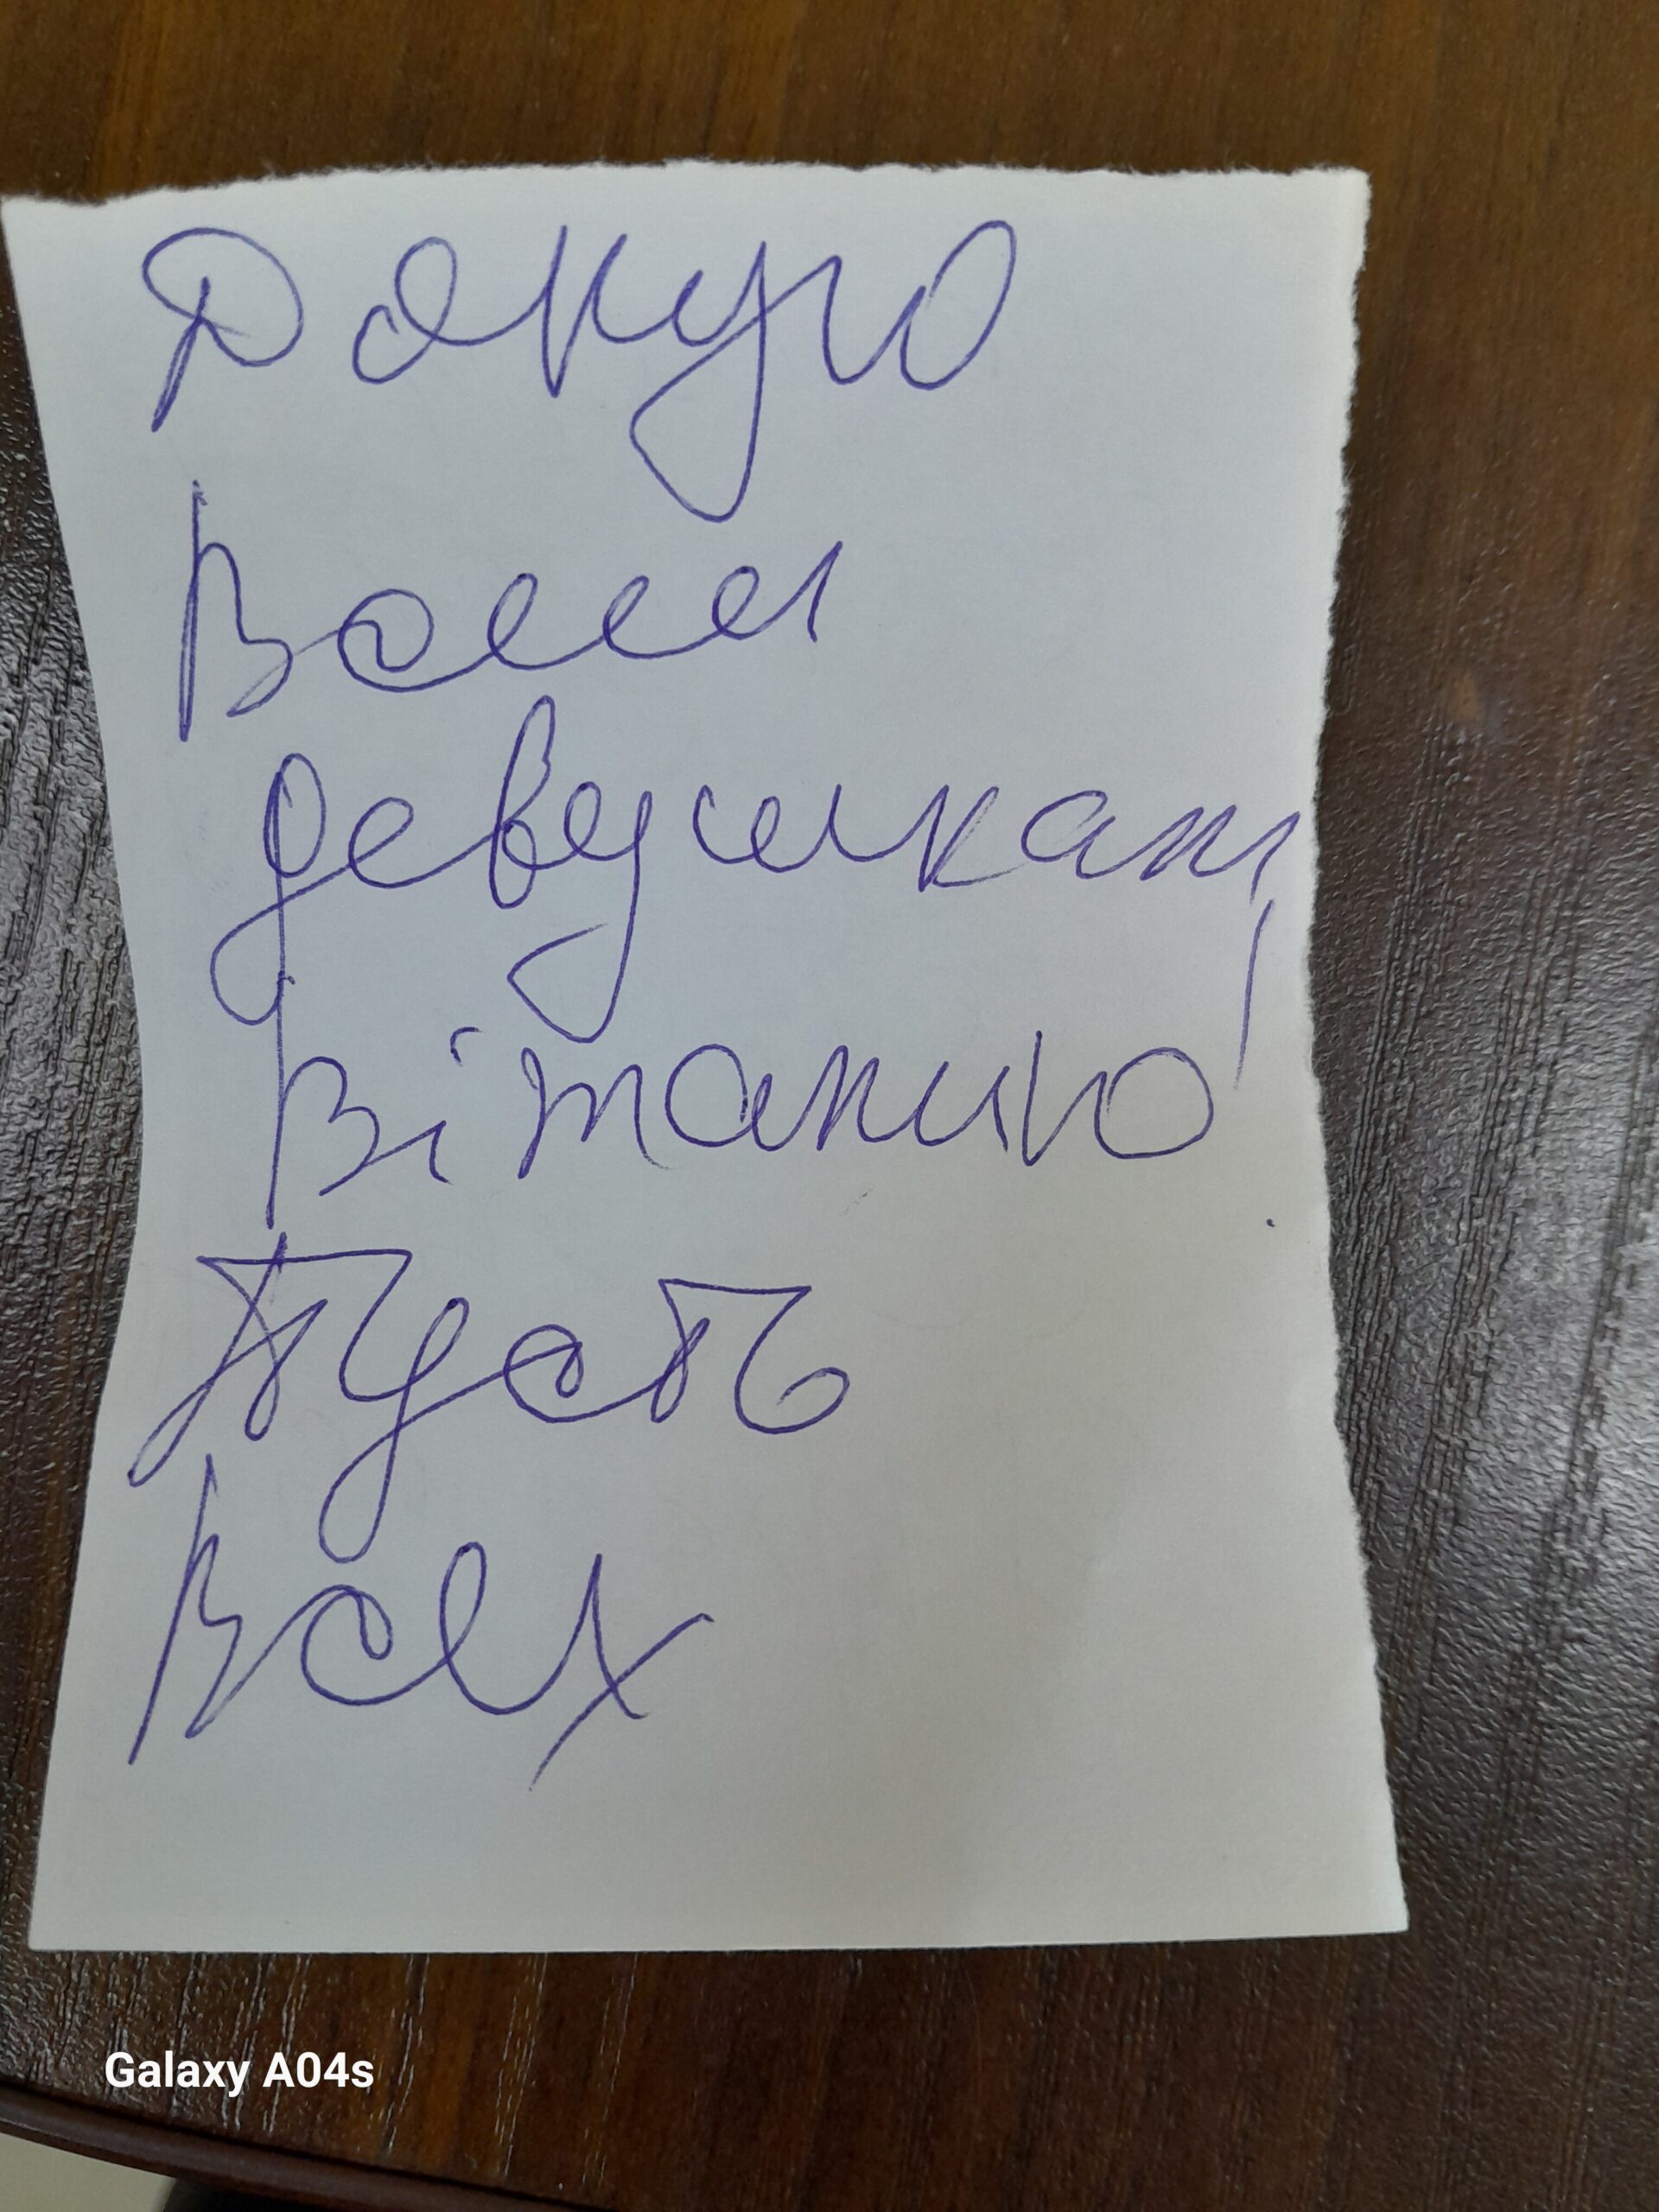 Дякую
Всем
девушкам
Вітанию!
Пусть
Всех
Galaxy A04s